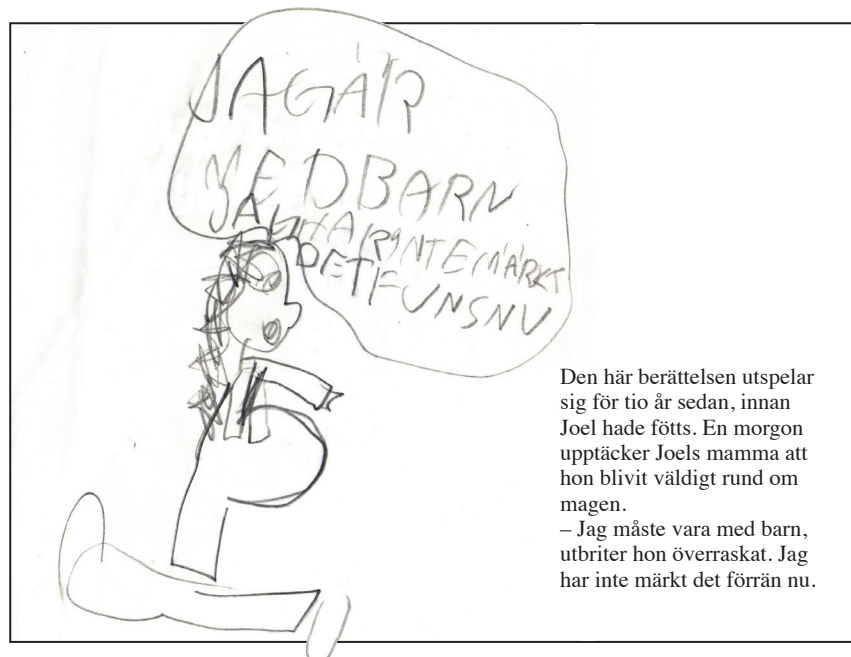 JAGÄR
MEDBARN
JAGHARINTEMÄRKT
DETFUNSNU
Den här berättelsen utspelar
sig för tio år sedan, innan
Joel hade fötts. En morgon
upptäcker Joels mamma att
hon blivit väldigt rund om
magen.
– Jag måste vara med barn,
utbriter hon överraskat. Jag
har inte märkt det förrän nu.